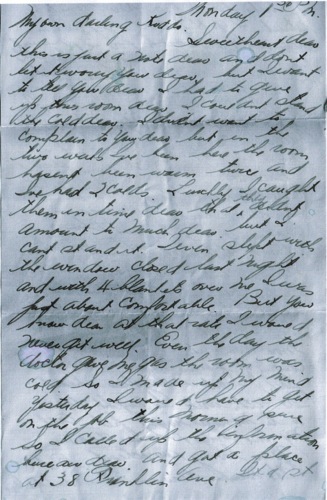 Monday 1:30 P.M.
My own darling
Sweetheart dear
this is just a note dear and dont
let it worry you dear, but I want
to tell you dear I had to give
up this room dear I couldnt stand
the cold dear. I didnt want to
complain to you dear but in the
two weeks Ive been here the room
hasent been warm twice and
Ive had 2 colds. Luckily I caught
them in time dear that they didnt
amount to much dear, but I
cant stand it. I even slept with
the window closed last night
and with 4 blankets over me I was
just about comfortable. But you
know dear at that rate I would
never get well. Even today the
doctor gave me gas the room was
cold so I made up my mind
yesterday I would have to get
on the job this morning sure
so I called up the information
bureau dear and got a place
at 38 Franklin Ave. It is just